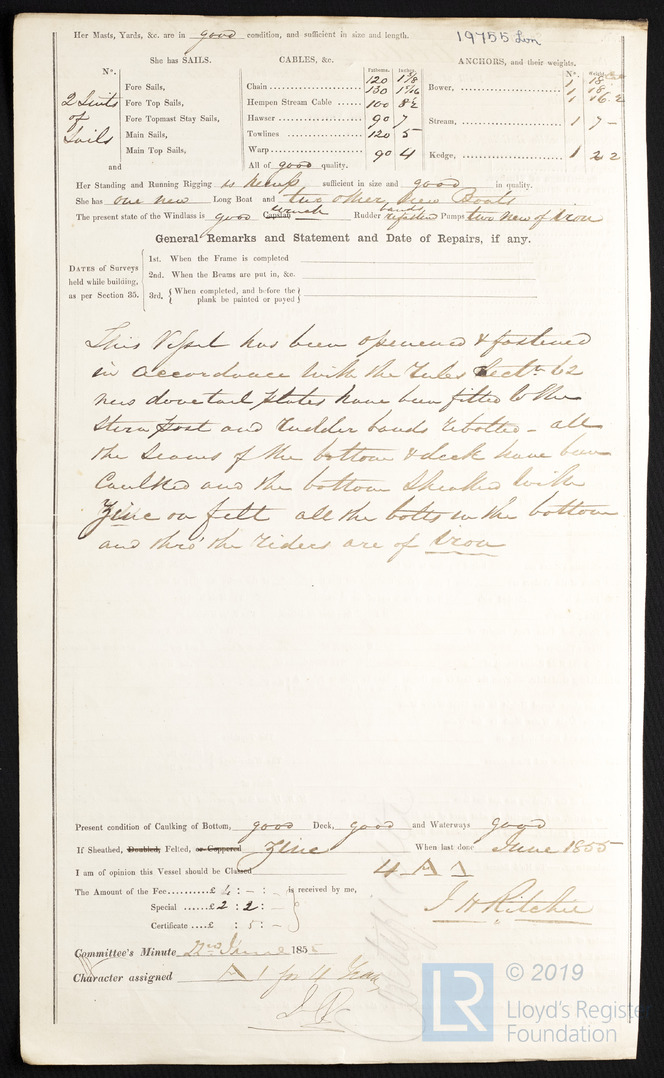 Her Masts, Yards, &c. are in good condition, and sufficient in size and length.
19755 Lon
She has SAILS.
CABLES, &c.
ANCHORS, and their weights.
Nº.
Fathoms. Inches.
Nº. Weight
2 Suits
of
Sails
and
Fore Sails,
Fore Top Sails,
Fore Topmast Stay Sails,
Main Sails,
Main Top Sails,
Chain 120 1 5/8
130 1 1/16
Hempen Stream Cable 100 8½
Hawser 90 7
Towlines 120 5
Warp 90 4
All of good quality.
Bower, 1 18
1 18
1 16.2
Stream, 1 7 –
Kedge, 1 2 2
Her Standing and Running Rigging is hemp sufficient in size and good in quality.
She has one new Long Boat and two other new Boats
The present state of the Windlass is good Capstan winch Rudder bands refasten Pumps two new of Iron
General Remarks and Statement and Date of Repairs, if any.
DATES of Surveys held while building, as per Section 35.
1st. When the Frame is completed
2nd. When the Beams are put in, &c.
3rd. When completed, and before the plank be painted or payed
This Vessel has been opened & fastened
in accordance with the Rules Sectn 62
new dovetail plates have been fitted to the
Stern post and rudder bands rebolted – all
the Seams of the bottom & deck have been
Caulked and the bottom Sheathed with
Zinc on felt all the bolts in the bottom
and thro' the riders are of Iron
Present condition of Caulking of Bottom, good Deck, good and Waterways good
If Sheathed, Doubled, Felted, or Coppered Zinc When last done June 1855
I am of opinion this Vessel should be Classed 4 A 1
The Amount of the Fee £ 4 : – : – is received by me,
Special £ 2 : 2 : –
Certificate £ : 5 : –
J H Ritchie
Committee's Minute 22nd June 1855
Character assigned A 1 for 4 Years
LR
© 2019
Lloyd's Register
Foundation